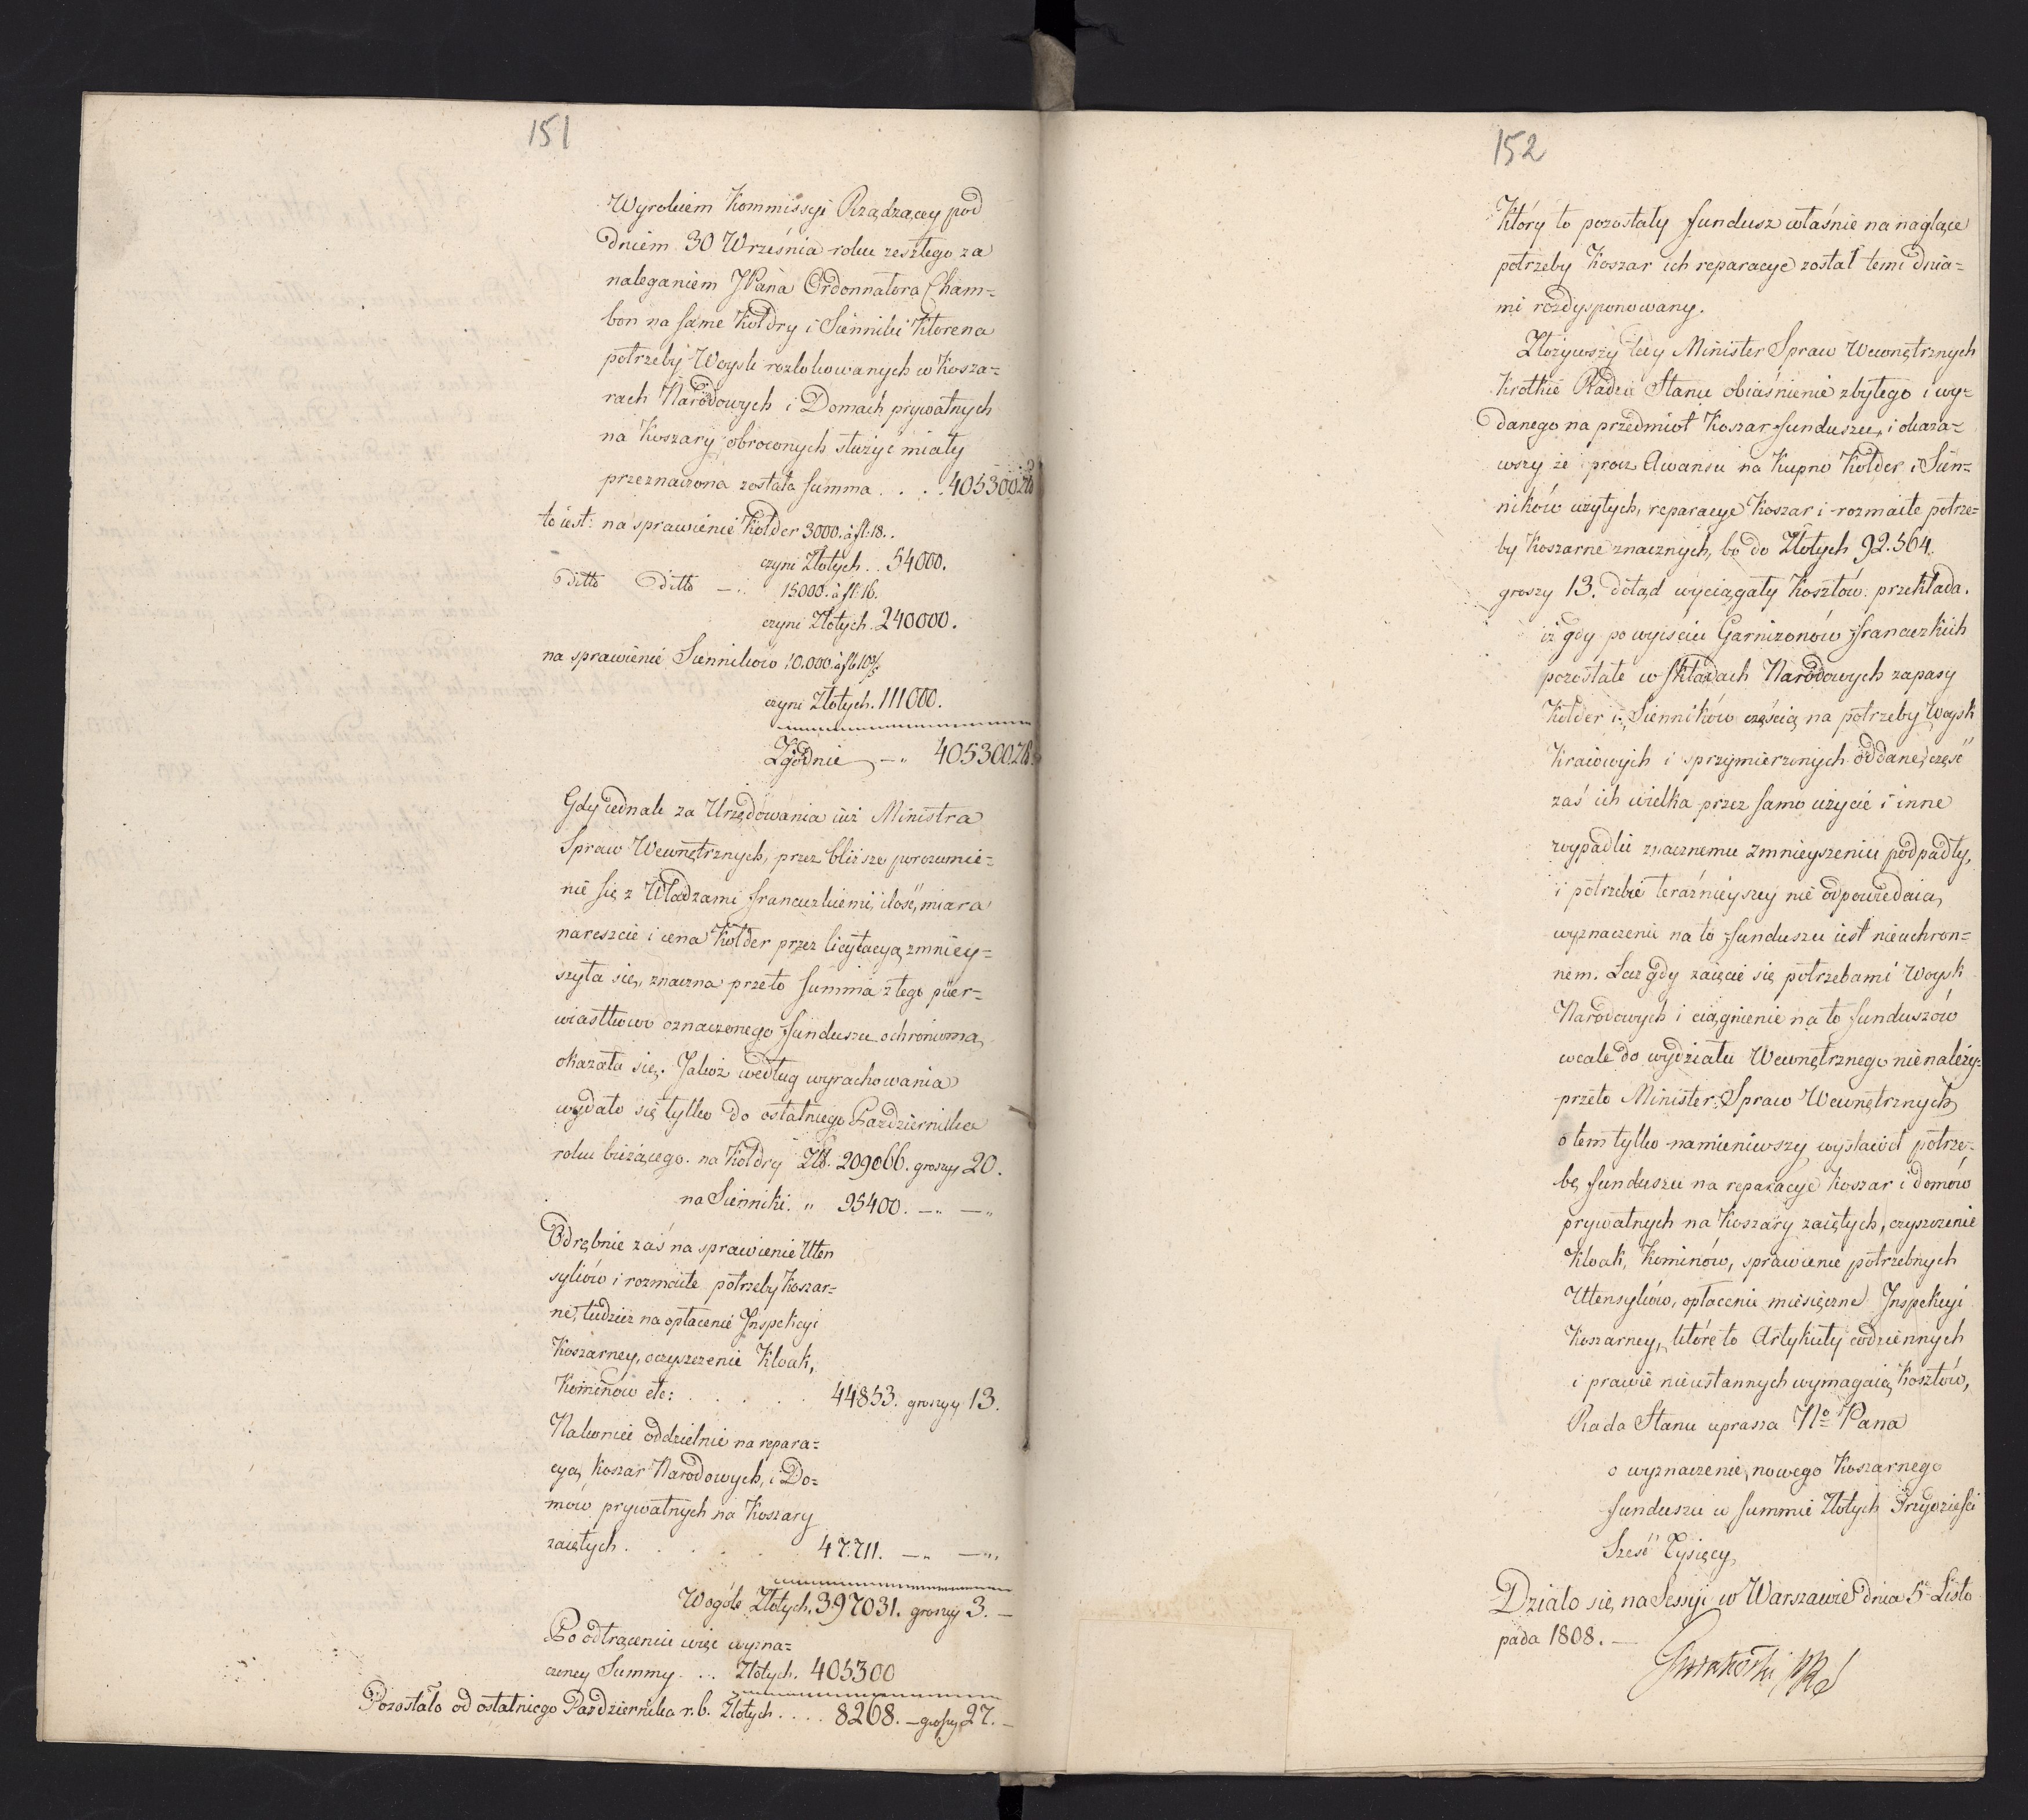 151
Wyrokiem Kommissyi Rządzącey pod
dniem 30 Września roku zeszłego za
naleganiem JPana Ordonnatora Cham=
bon na same Kołdry i Sienniki które na
potrzeby Woysk rozlokowanych w Kosza=
rach Narodowych i Domach prywatnych
na Koszary obroconych służyć miały
przeznaczona została summa . . . . 405300 Zł
to iest: na sprawienie Kołder 3000. à fl. 18. .
czyni Złotych . . 54000.
Ditto Ditto — " 15000. à fl. 16.
czyni Złotych. 240000.
na sprawienie Siennikow 10.000. à fl.
czyni Złotych. 111000.
Zgodnie — " 405300 Zł.
Gdy iednak za Urzędowania iuż Ministra
Spraw Wewnętrznych, przez bliższe porozumie=
nie się z Władzami francuzkiemi, ilość, miara
nareszcie i cena Kołder przez licytacyą zmniey=
szyła się, znaczna przeto summa z tego pier=
wiastkowo oznaczonego funduszu ochronioną
okazała się. Jakoż według wyrachowania
wydało się tylko do ostatniego Października
roku bieżącego. na Kołdry Zł. 209066. groszy 20.
na Sienniki. " 95400. — " — "
Odrębnie zaś na sprawienie Uten
syliów i rozmaite potrzeby Koszar=
ne, tudzież na opłacenie Inspekcyi
Koszarney, oczyszczenie Kloak,
Kominow etc: . . . . . 44853. groszy 13.
Nakoniec oddzielnie na repara=
cyą Koszar Narodowych, i Do=
mow prywatnych na Koszary
zaiętych . . . . . 47.711. — " — "
Wogóle Złotych. 397031. groszy 3. —
Po odtrąceniu więc wyzna=
czoney Summy . . . Złotych. 405300
Pozostało od ostatniego Października r. b. Złotych . . . . 8268. — groszy 27. —
152
Który to pozostały fundusz właśnie na naglące
potrzeby Koszar ich reparacye został temi dnia=
mi rozdysponowany.
Złożywszy tedy Minister Spraw Wewnętrznych
krotkie Radzie Stanu obiaśnienie zbytego i wy=
danego na przedmiot Koszar funduszu, i okaza=
wszy że procz Awansu na Kupno Kołder i Sien=
ników użytych, reparacye Koszar i rozmaite potrze=
by Koszarne znacznych, bo do Złotych 92.564.
groszy 13. dotąd wyciągały Kosztów. przekłada.
iż gdy po wyiściu Garnizonów francuzkich
pozostałe w składach Narodowych zapasy
Kołder i Sienników częścią na potrzeby Woysk
Kraiowych i sprzymierzonych oddane, część
zaś ich wielka przez samo użycie i inne
wypadki znacznemu zmnieyszeniu podpadły,
i potrzebie teraźnieyszey nie odpowiedaią,
wyznaczenie na to funduszu iest nieuchron=
nem. Lecz gdy zaięcie się potrzebami Woysk
Narodowych i ciągnienie na to funduszów
wcale do wydziału Wewnętrznego nie należy
przeto Minister Spraw Wewnętrznych
o tem tylko namieniwszy wystawił potrze=
bę funduszu na reparacye Koszar i domów
prywatnych na Koszary zaiętych, czyszczenie
Kloak, Kominów, sprawienie potrzebnych
Utensyliów, opłacenie miesięczne Inspekcyi
Koszarney, które to Artykuły codziennych
i prawie nieustannych wymagaią Kosztów,
Rada Stanu uprasza No Pana
o wyznaczenie nowego Koszarnego
funduszu w summie Złotych Trzydzieści
Sześć Tysięcy
Działo się na Sessyi w Warszawie dnia 5 Listo
pada 1808. —